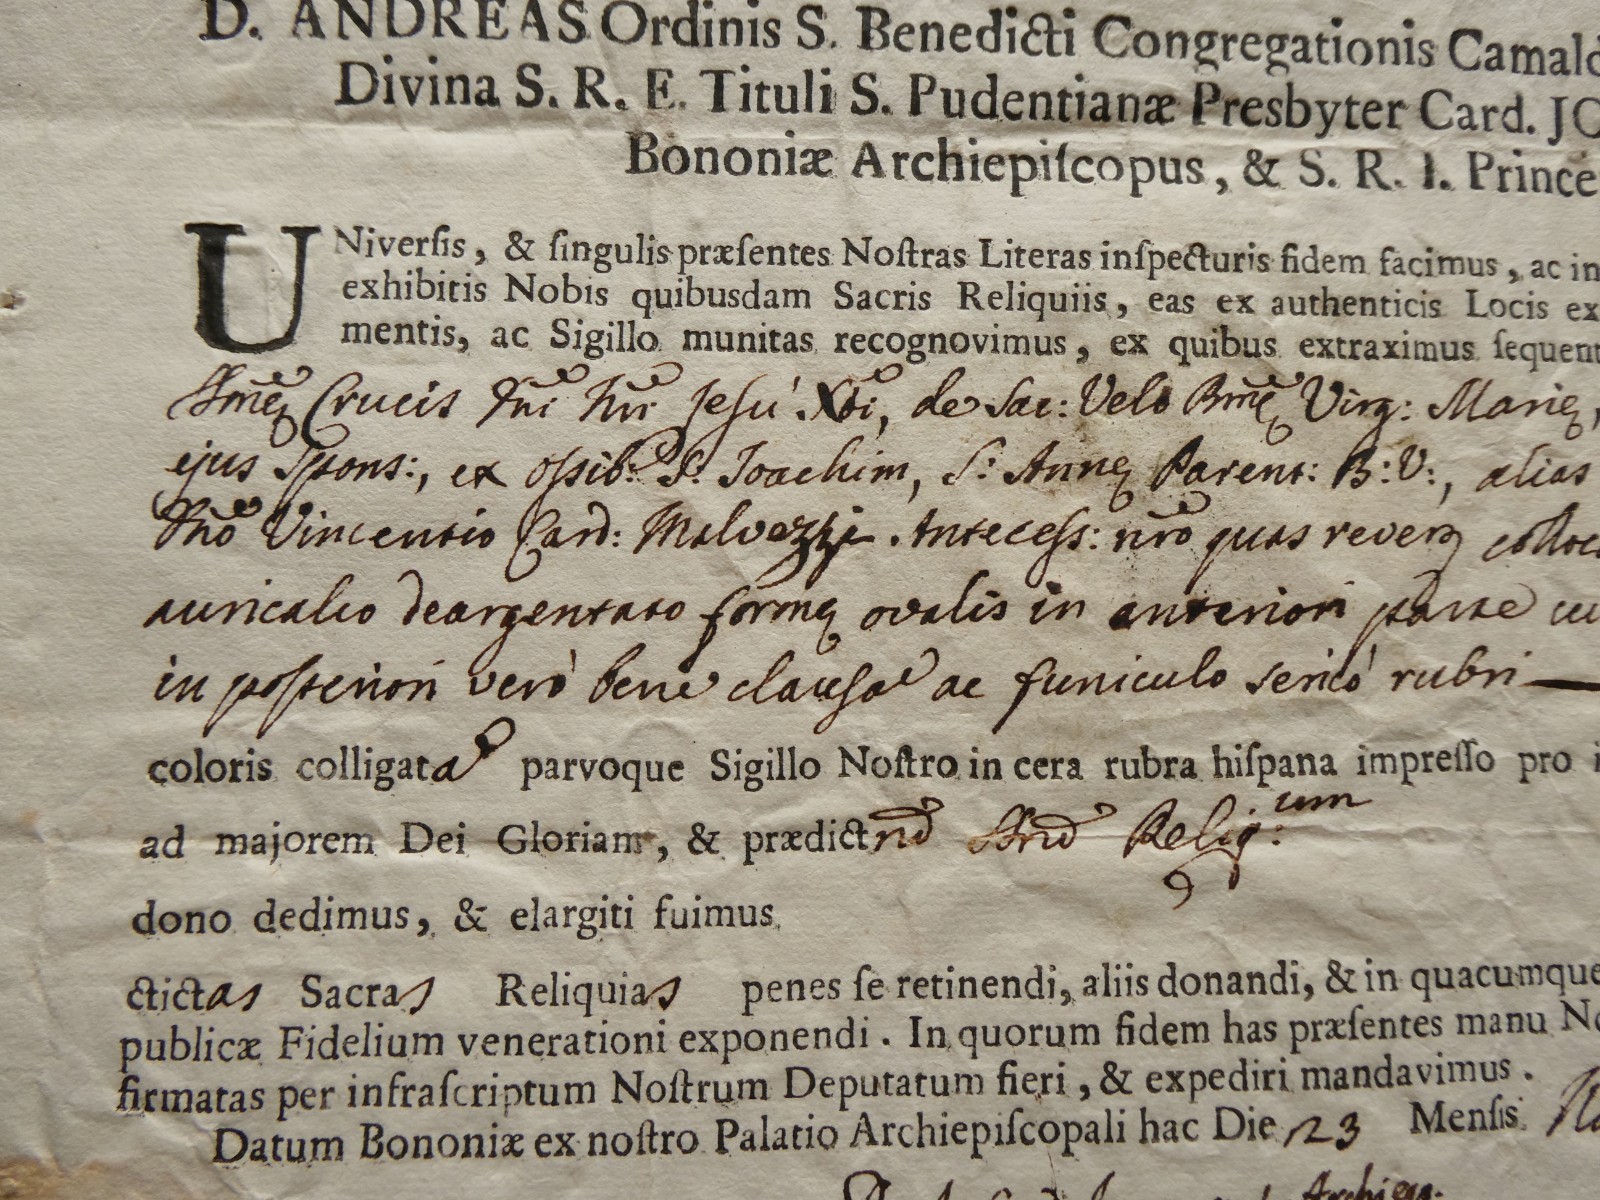 D. ANDREAS Ordinis S. Benedicti Congregationis Camald
Divina S. R. E. Tituli S. Pudentianæ Presbyter Card. JO
Bononiæ Archiepiſcopus, & S. R. I. Prince
UNiverſis, & ſingulis præſentes Noſtras Literas inſpecturis fidem facimus, ac in
exhibitis Nobis quibusdam Sacris Reliquiis, eas ex authenticis Locis ex
mentis, ac Sigillo munitas recognovimus, ex quibus extraximus ſequent
Smę Crucis Dni Nri Jesu Xti, de Sac: Velo Bmę Virg: Marię,
ejus Spons:, ex ossib: S: Joachim, S: Annę Parent: B: V:, alias
Vincentio Card: Malvezzi Antecess: nro quas reverẽ colloc
auricalco deargentato formę ovalis in anteriori parte
in posteriori verò bene clausa ac funiculo sericò rubri
coloris colligata parvoque Sigillo Noſtro in cera rubra hiſpana impreſſo pro i
ad majorem Dei Gloriam, & prædict Relig:um
dono dedimus, & elargiti fuimus
ctictas Sacras Reliquias penes ſe retinendi, aliis donandi, & in quacumque
publicæ Fidelium venerationi exponendi. In quorum fidem has præſentes manu No
firmatas per infraſcriptum Noſtrum Deputatum fieri, & expediri mandavimus.
Datum Bononiæ ex noſtro Palatio Archiepiſcopali hac Die 23 Menſis
Archiep: